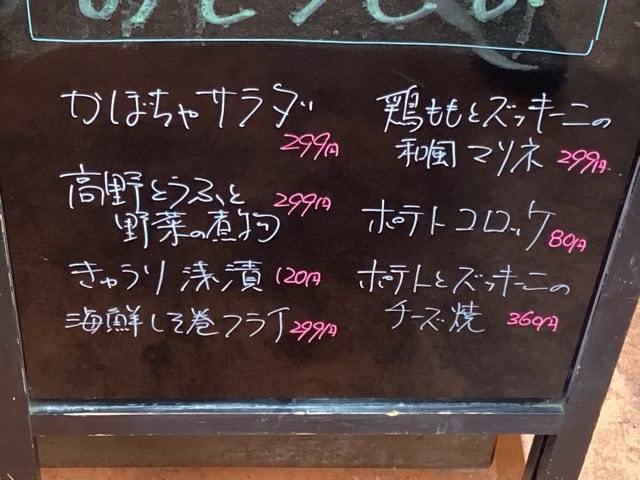 かぼちゃサラダ
299円
高野とうふと 299円
野菜の煮物
きゅうり浅漬 120円
海鮮しそ巻フライ 299円
鶏ももとズッキーニの
和風マリネ 299円
ポテトコロッケ
80円
ポテトとズッキーニの
チーズ焼 360円